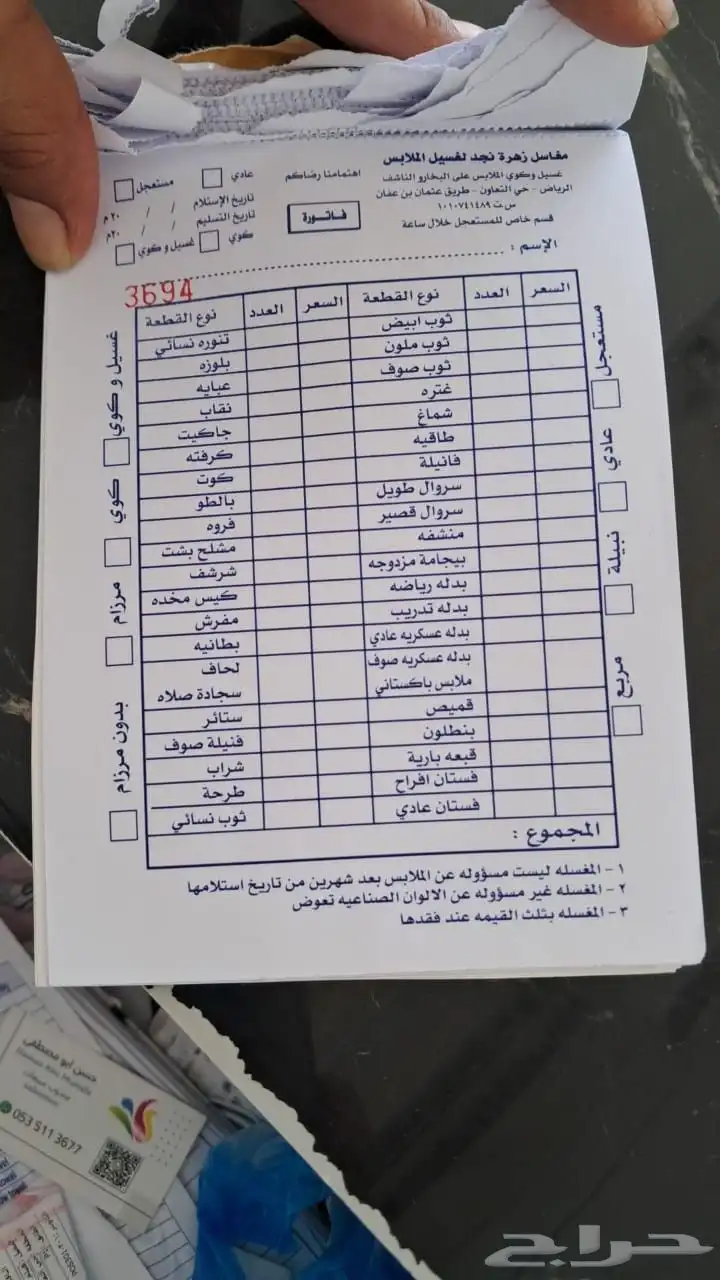 مغاسل زهرة نجد لغسيل الملابس
غسيل وكوي الملابس على البخار و الناشف
الرياض - حي التعاون - طريق عثمان بن عفان
س.ت ١٠١٠٧٤١٤٨٩
قسم خاص للمستعجل خلال ساعة
اهتمامنا رضاكم
فاتورة
عادي مستعجل
تاريخ الإستلام / / ٢٠م
تاريخ التسليم / / ٢٠م
كوي غسيل و كوي
الإسم :
3694
السعر العدد نوع القطعة السعر العدد نوع القطعة
ثوب ابيض تنوره نسائي
ثوب ملون بلوزه
ثوب صوف عبايه
غتره نقاب
شماغ جاكيت
طاقيه كرفته
فانيلة كوت
سروال طويل بالطو
سروال قصير فروه
منشفه مشلح بشت
بيجامة مزدوجه شرشف
بدله رياضه كيس مخده
بدله تدريب مفرش
بدله عسكريه عادي بطانيه
بدله عسكريه صوف لحاف
ملابس باكستاني سجادة صلاه
قميص ستائر
بنطلون فنيلة صوف
قبعه بارية شراب
فستان افراح طرحة
فستان عادي ثوب نسائي
المجموع :
مستعجل
عادي
نبيلة
مربع
غسيل و كوي
كوي
مرزام
بدون مرزام
١ - المغسله ليست مسؤوله عن الملابس بعد شهرين من تاريخ استلامها
٢ - المغسله غير مسؤوله عن الالوان الصناعيه تعوض
٣ - المغسله بثلث القيمه عند فقدها
حسن ابو مصطفى
053 511 3677
حراج